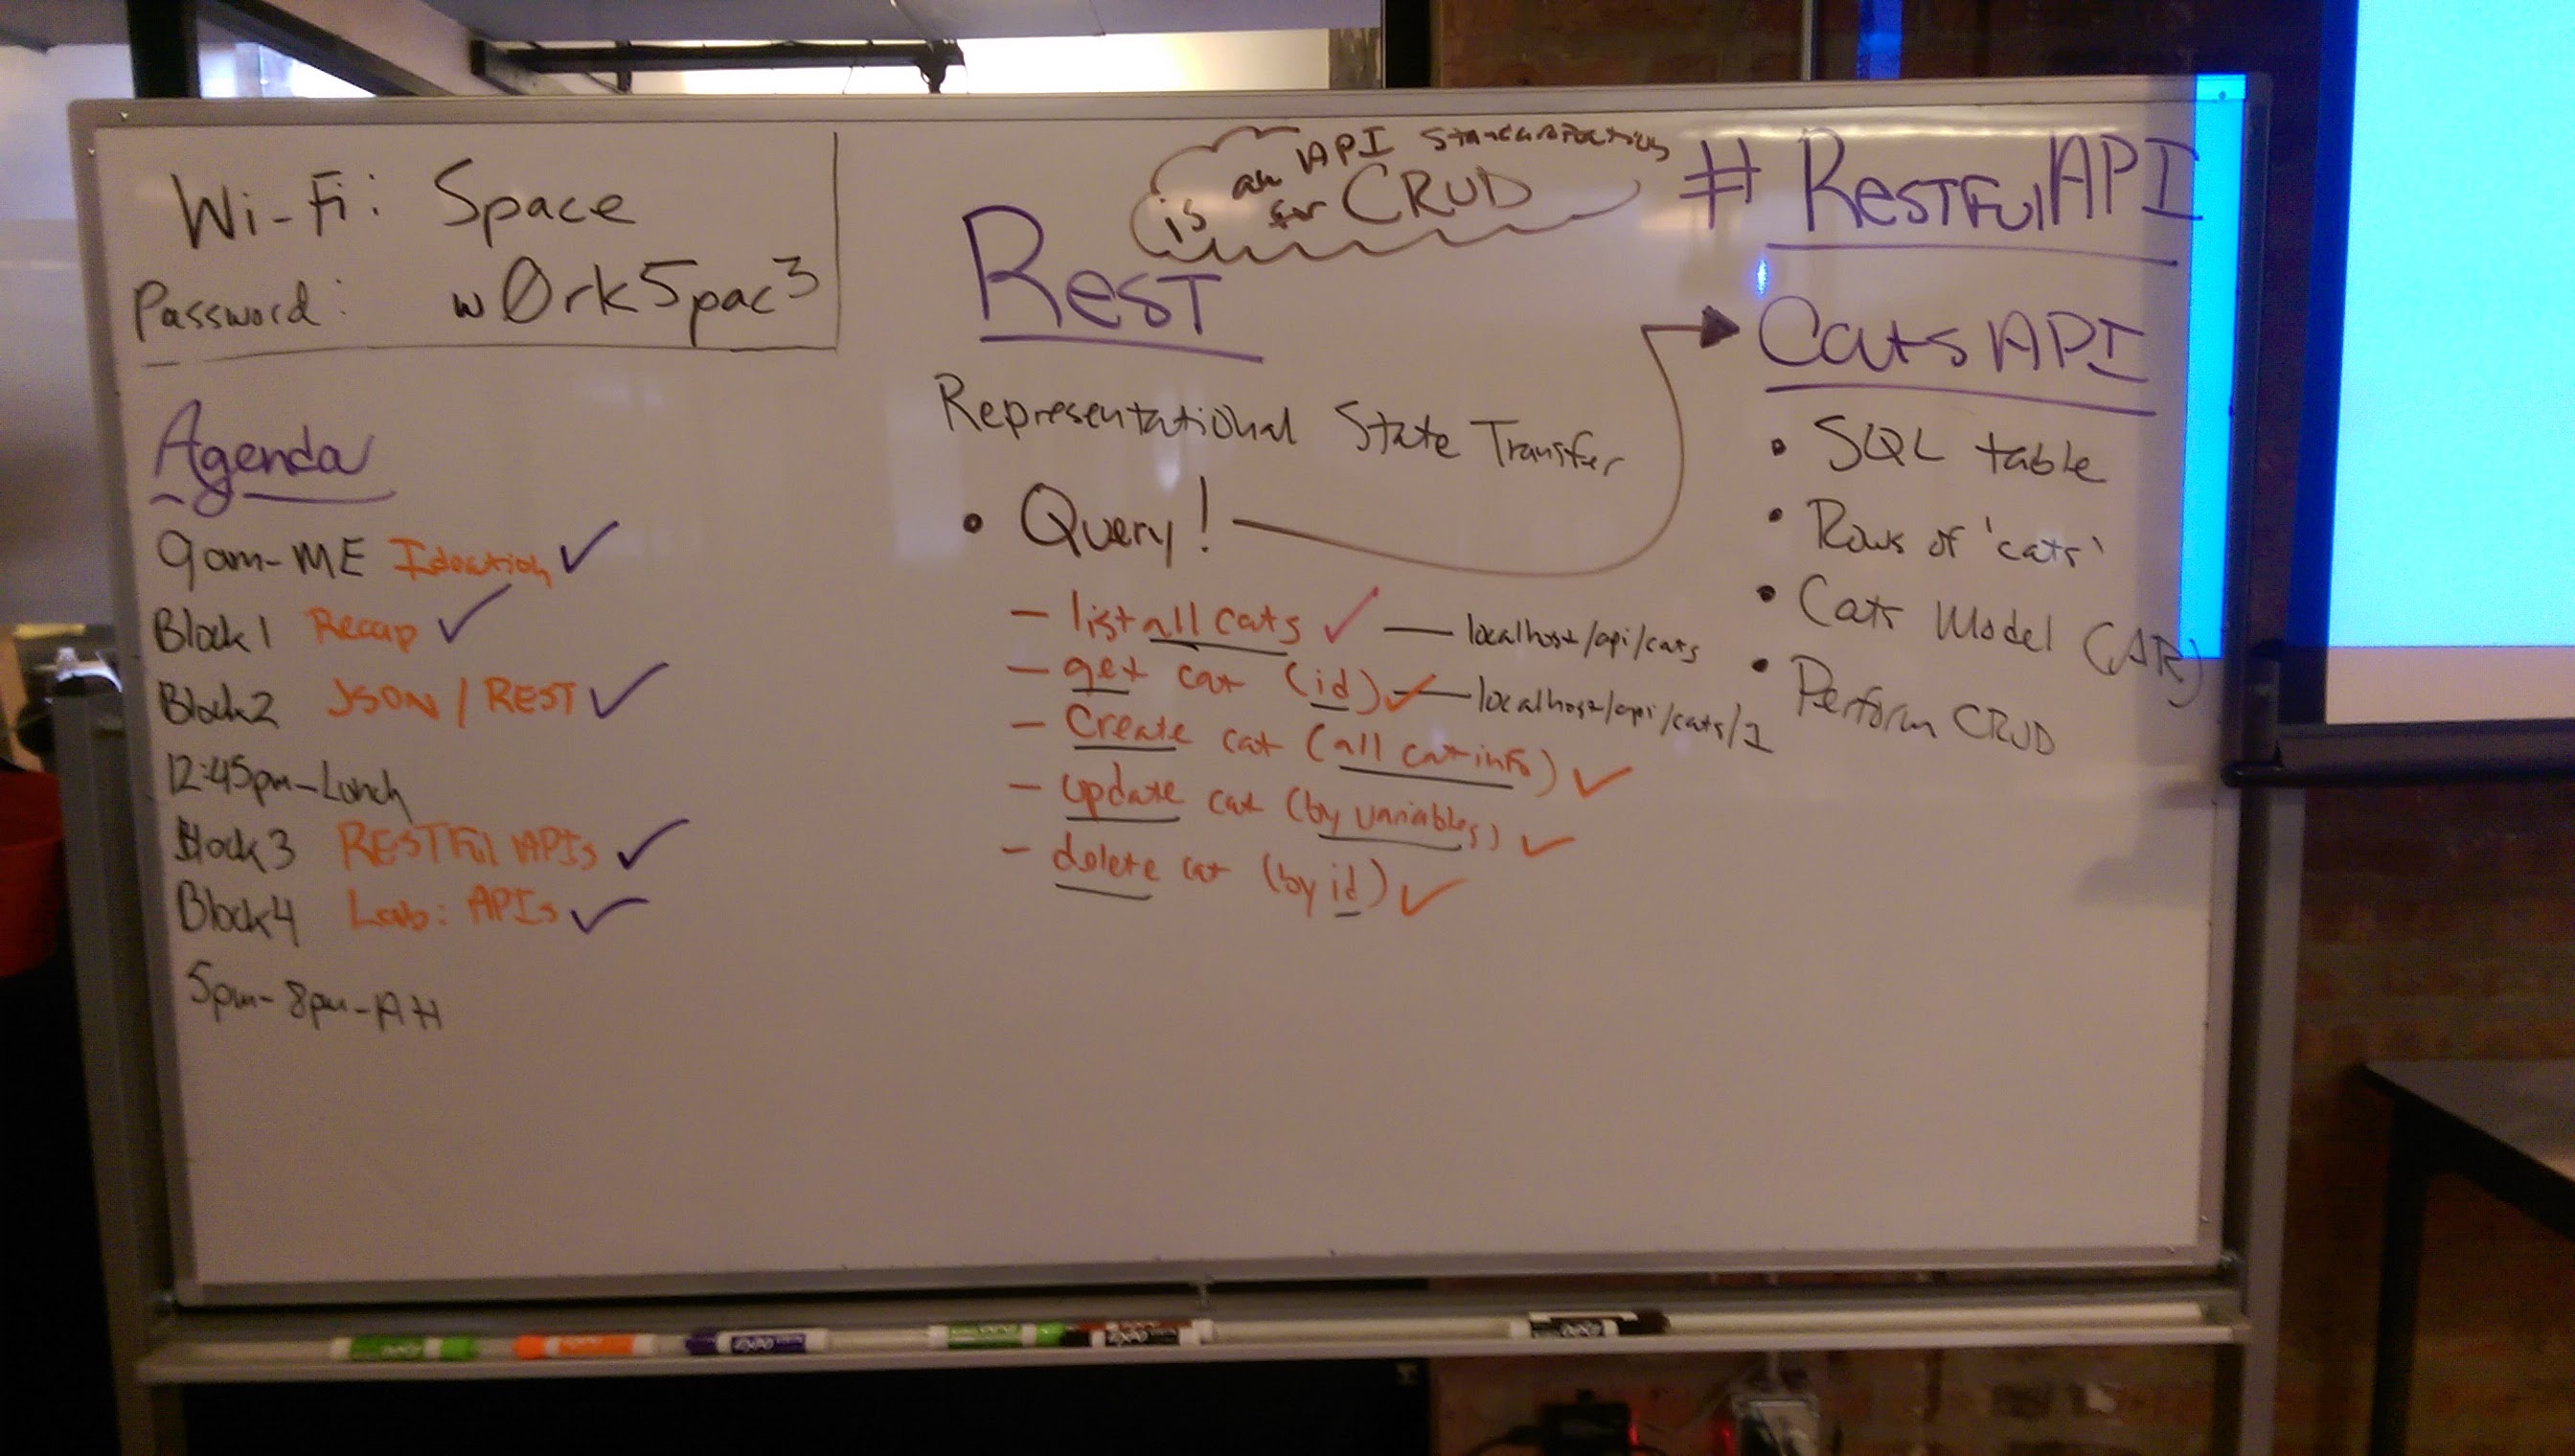 Wi-Fi: Space
Password: w0rk5pac3
Agenda
9am-ME Ideation ✓
Block1 Recap ✓
Block2 JSON / REST ✓
12:45pm-Lunch
Block3 RESTFul APIs ✓
Block4 Lab: APIs ✓
5pm-8pm-AH
is an API
for CRUD
ReST
Representational State Transfer
• Query!
- list all cats ✓ — localhost/api/cats
- get cat (id) ✓ — localhost/api/cats/1
- Create cat (all cat info) ✓
- update cat (by variables) ✓
- delete cat (by id) ✓
# ReSTFulAPI
Cats API
• SQL table
• Rows of 'cats'
• Cats Model (AR)
• Perform CRUD
EXPO